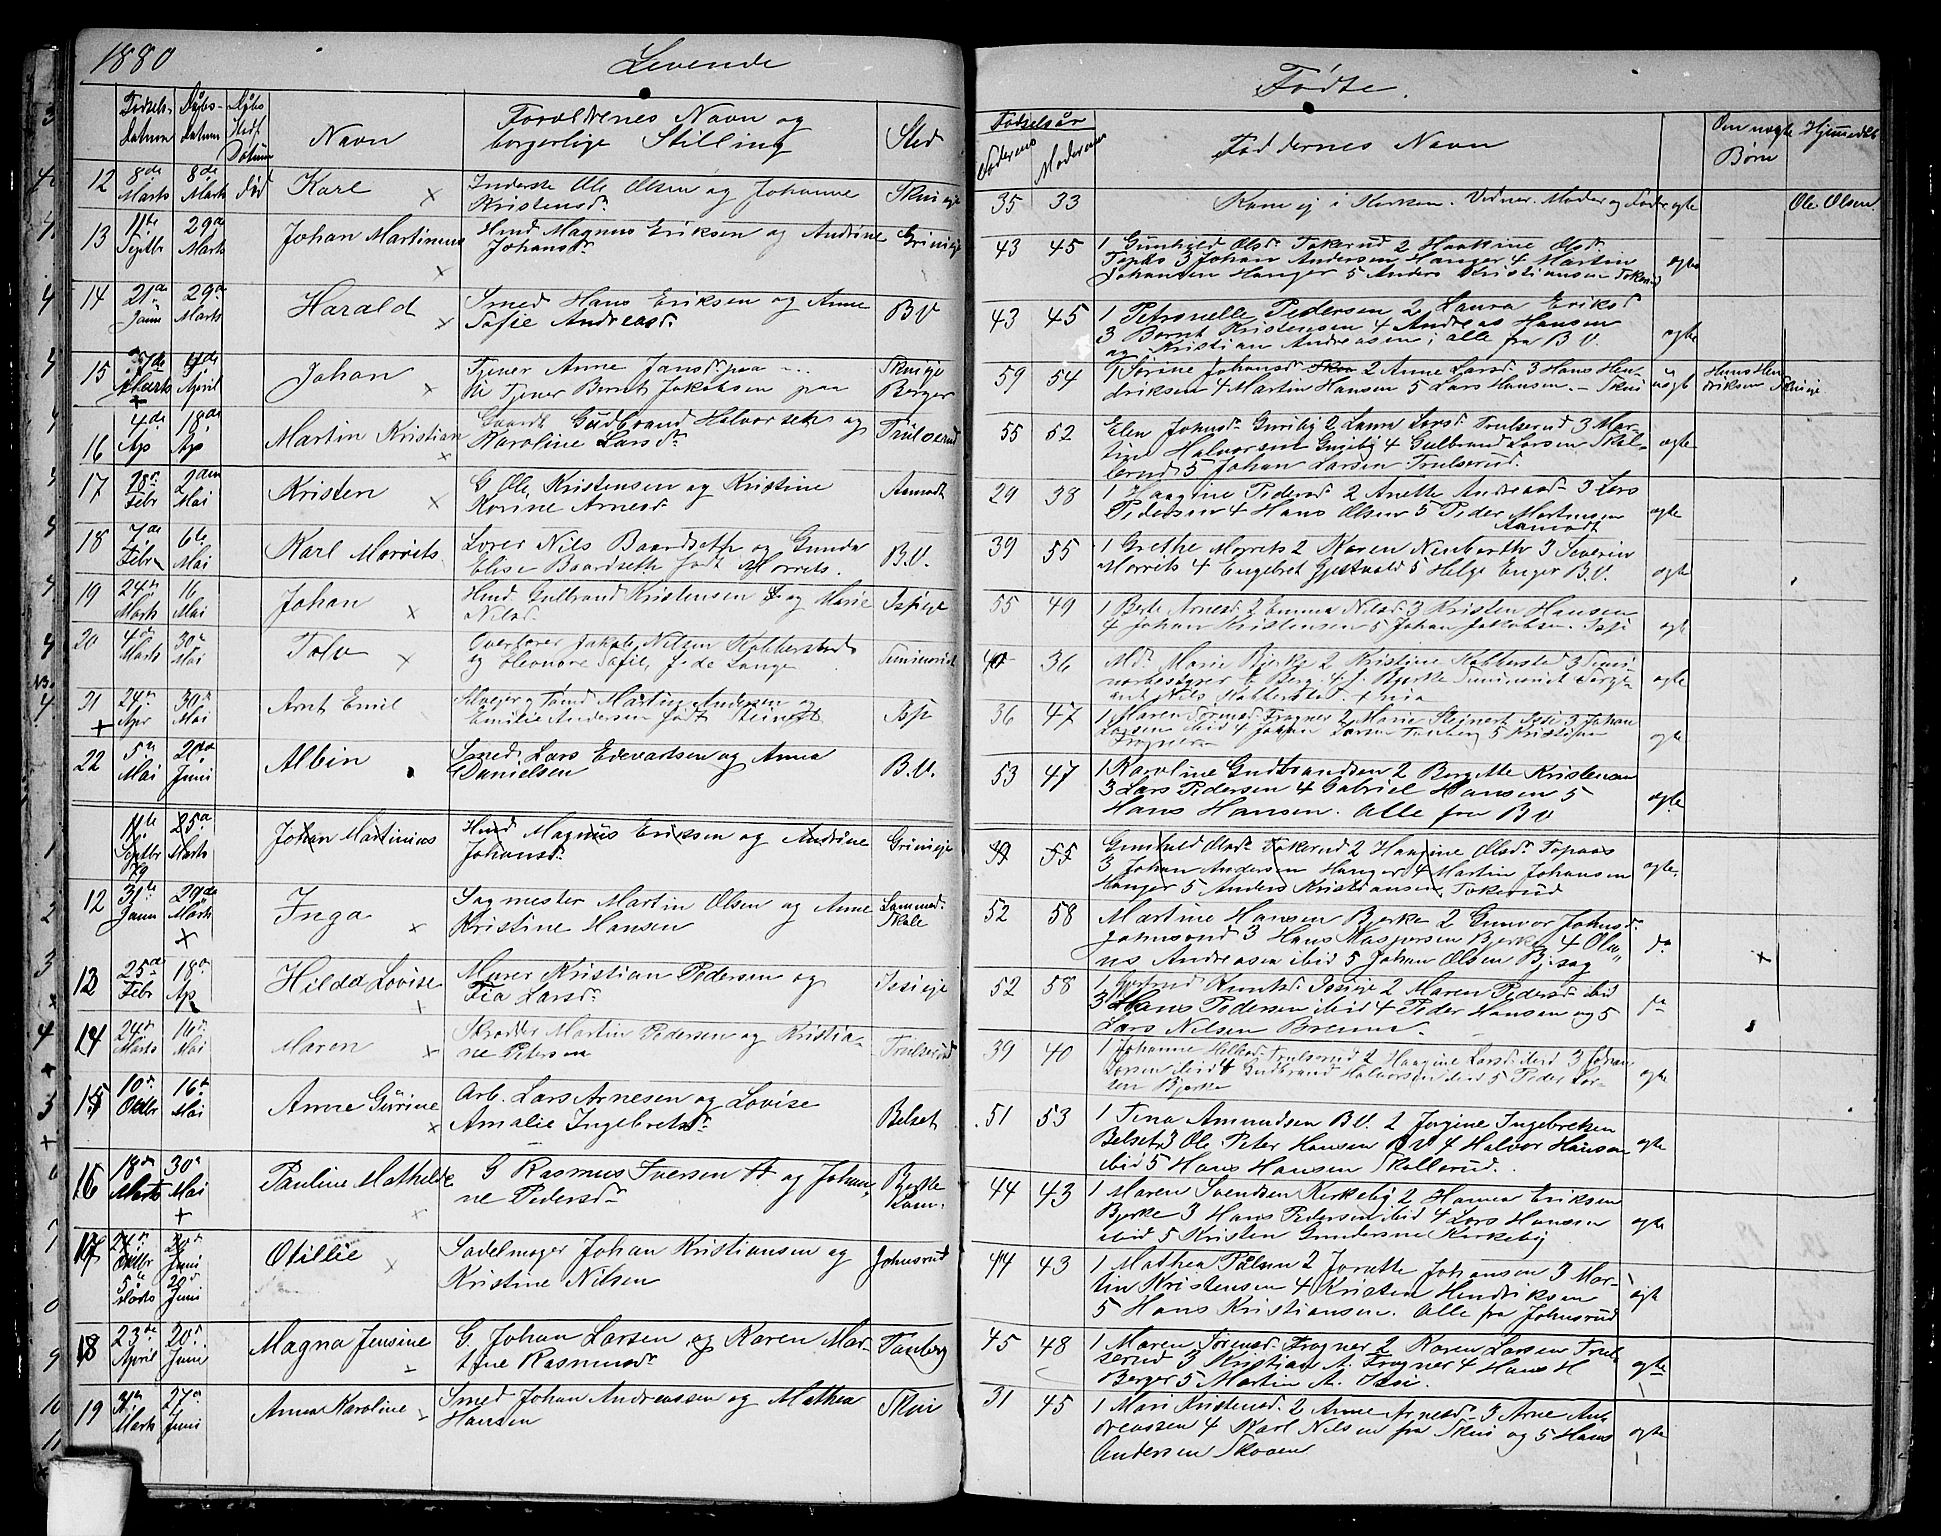 1880 Levende
Fødte.
Fødsels-
datum
Døbs-
datum
Døbs
Sted
Navn
Forældrenes Navn og
borgerlige Stilling
Sted
Fødselsår
Faderens
Moderens
Faddernes Navn
Om uægte
Børn
12 8de Marts 8de Marts død Karl
Inderste Ole Olsen og Johanne
Kristensd.
Skuieje
35 33 Kom ej i Kirken. Vidner. Moder og Fader ægte Ole Olsen.
13 11te Septbr 29de Marts Johan Martinius
Hmd Magnus Eriksen og Andrine
Johansd.
Grinieje
43 45 1 Gunhild Olsd. Tokerud 2 Haakine Olsd.
Topås 3 Johan Andersen Hanger 4 Martin
Johansen Hanger 5 Anders Kristiansen Tokerud
ægte
14 21de Janu 29de Marts Harald
Smed Hans Eriksen og Anne
Sofie Andreasd.
B.V
43 45 1 Petronelle Pedersen 2 Hanna Eriksd
3 Bernt Kristensen 4 Andreas Hansen
og Kristian Andreasen, alle fra B.V.
ægte
15 Marts 4de April Johan
Tjener Anne Jansd. paa
til Tjener Bernt Jakobsen paa
Skuieje
Berger
59 54 1 Sørine Johansd. 2 Anne Larsd. 3 Hans Hen-
driksen 4 Martin Hansen 5 Lars Hansen. - Skui
uægt Hans Hen
driksen Skuieje
16 4de Ap 18de Ap Martin Kristian
Gaardb Gudbrand Halvorsen og
Karoline Larsd.
Trulserud
55 52 Elen Johnsd. Guriby 2 Laura Larsd. Trulserud 3 Mar-
tin Halvorsen Guriby 4 Gulbrand Larsen Skol-
lerud 5 Johan Larsen Trulserud.
ægte
17 28de Febr 2den Mai Kristen
G Ole Kristensen og Kristine
Korine Arnesd.
Aamodt
29 38 1 Haagine Pedersd. 2 Anette Andreasd. 3 Lars
Pedersen 4 Hans Olsen 5 Peder Martinsen
Aamodt
ægte
18 7de Febr 6te Mai Karl Morrits
Lærer Nils Baardseth og Gunda
Elise Baardseth født Morrits.
B.V.
39 55 1 Grethe Morrits 2 Karen Neuberth 3 Severin
Morrits 4 Engebret Gjestvold 5 Helge Enger B.V.
ægte
19 24de Marts 16 Mai Johan
Hmd Gulbrand Kristensen og Marie
Nilsd.
Isieje
55 49 1 Berte Arnesd. 2 Emma Nilsd. 3 Kristen Hansen
4 Johan Kristensen 5 Johan Jakobsen. Isi
ægt
20 4de Marts 30te Mai
Overlærer Jakob Nilsen Kobberstad
og Eleonore Sofie, f. de Lange
36 Md. Marie Bjerke 2 Kristine Kobberstad 3 Semi-
narbestyrer Berg. 4 J. Bjerke
ægte
21 24de Apr 30te Mai Arnt Emil
Martin Andersen og
Emilie Andersen født Steinert
Isi
36 47 1 Maren Sørensd. Frogner 2 Marie Steinert Isi 3 Johan
Larsen ibid 4 Johan Larsen Tanberg 5 Kristian
Frogner
ægte
22 5te Mai 20de Juni Albin
Smed, Lars Edevartsen og Anna
Danielsen
B.V.
53 47 1 Karoline Gudbrandsen 2 Bergitte Kristensen
3 Lars Pedersen 4 Gabriel Hansen 5
Hans Hansen. Alle fra B V
ægte
1 11te Septbr 79 25de Marts Johan Martinius
Hmd Magnus Eriksen og Andrine
Johansd.
Grinieje
55 Gunhild Olsd. Tokerud 2 Haagine Olsd. Topaas
3 Johan Andersen Hanger 4 Martin Johansen
Hanger 5 Anders Kristiansen Tokerud
ægte.
2 12 31te Janu Marts Inga
Sagmester Martin Olsen og Anne
Kristine Hansen
52 58 Martine Hansen Bjerke 2 Gunvor Johnsd.
Johnsrud 3 Hans Kaspersen Bjerke 4 Ole
Andreasen ibid 5 Johan Olsen Bj.sag
do
3 13 25de Febr 18de Ap Hilda Lovise
Murer Kristian Pedersen og
Fia Larsd.
Isieje
52 58 1 Gjertrud Knutsd. Isieje 2 Maren Pedersd. ibid
3 Hans Pedersen ibid 4 Peder Hansen og 5
Lars Nilsen Brenna.
do
4 14 24de Marts 16de Mai Maren
Skrædder Martin Pedersen og Kristia-
ne Petersen
Trulserud
39 40 1 Johanne Trulserud 2 Haagine Larsd. ibid 3 Johan
Larsen ibid 4 Gudbrand Halvorsen ibid 5 Peder Lar-
sen Bjerke
ægte
5 15 10de Oktbr 16de Mai Anne Gurine
Arb. Lars Arnesen og Lovise
Amalie Ingebretsd.
Belset
51 53 1 Tina Amundsen B.V. 2 Jorgine Ingebretsen
Belset 3 Ole Peter Hansen B V 4 Halvor Hansen
ibid 5 Hans Hansen Skollerud.
ægte
6 16 18de Marts 30te Mai Pauline Mathilde
G Rasmus Iversen og Johan-
ne Pedersd.
44 43 1 Maren Svendsen Kirkeby 2 Hanna Eriksen
Bjerke 3 Hans Pedersen ibid 4 Lars Hansen
ibid 5 Kristen Gundersen Kirkeby
ægte
7 17 5te Marts 20de Juni Otillie
Sadelmager Johan Kristiansen og
Kristine Nilsen
Johnsrud
44 43 1 Mathea Pålsen 2 Jorette Johansen 3 Mar-
tin Kristensen 4 Kristen Hendriksen
5 Hans Kristiansen. Alle fra Johnsrud
ægt
8
9 18 23de April 20de Juni Magna Jensine
G. Johan Larsen og Karen Mar-
tine Rasmusd.
Tanberg
45 48 1 Maren Sørensd. Frogner 2 Karen Larsen Trul-
serud 3 Kristian A. Frogner 4 Hans H
Berger 5 Martin A. Isi.
ægte
10 19 31te Marts 27de Juni Anna Karoline
Smed Johan Andreassen og Mathea
Hansen
Skui
31 45 1 Mari Kristensd. 2 Anne Arnesd. 3 Arne An-
dreassen 4 Karl Nilsen fra Skui og 5 Hans
Andersen Skoven
ægte
11